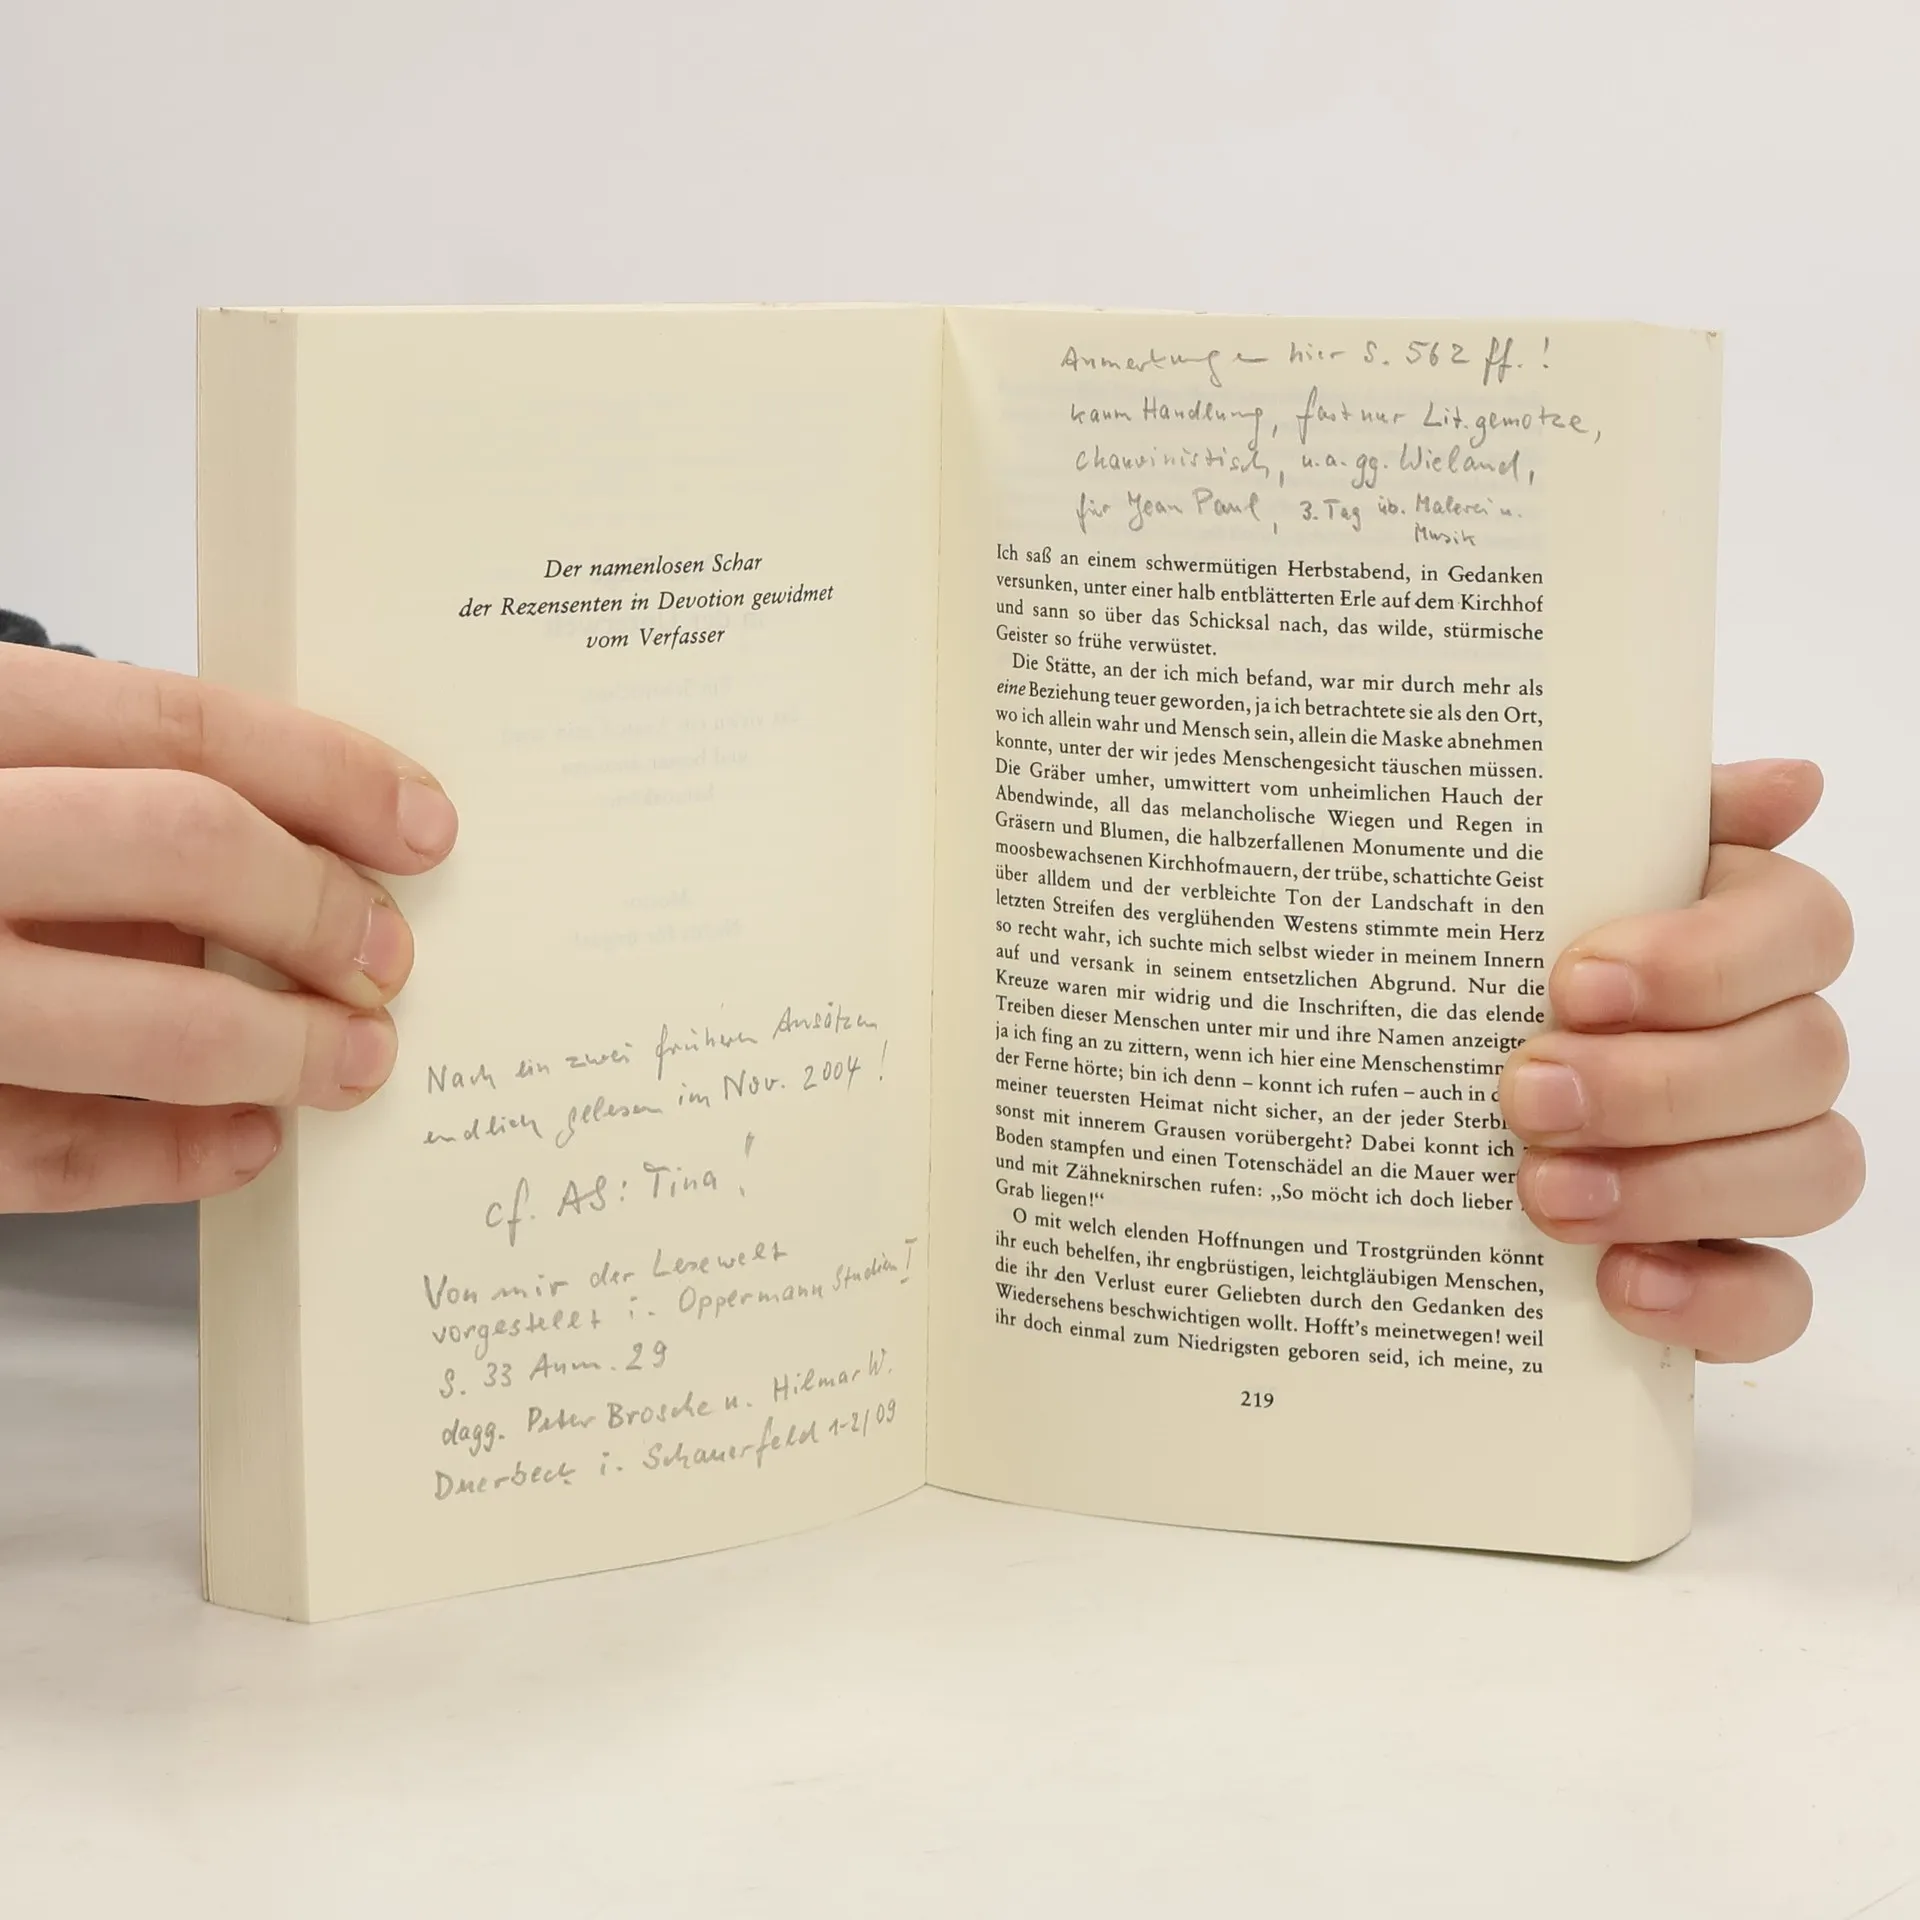 Der namenlosen Schar
der Rezensenten in Devotion gewidmet
vom Verfasser
Nach ein zwei früheren Ansätzen
endlich gelesen im Nov. 2004!
cf. AS: Tina!
Von mir der Lesewelt
vorgestellt i. Oppermann Studien I
S. 33 Anm. 29
dagg. Peter Brosche u. Hilmar W.
Duerbeck i. Schauerfeld 1-2/09
Anmerkungen hier S. 562 ff.!
kaum Handlung, fast nur Lit.gemotze,
chauvinistisch, u.a. gg. Wieland,
für Jean Paul, 3. Tag üb. Malerei u.
Musik
Ich saß an einem schwermütigen Herbstabend, in Gedanken
versunken, unter einer halb entblätterten Erle auf dem Kirchhof
und sann so über das Schicksal nach, das wilde, stürmische
Geister so frühe verwüstet.
Die Stätte, an der ich mich befand, war mir durch mehr als
eine Beziehung teuer geworden, ja ich betrachtete sie als den Ort,
wo ich allein wahr und Mensch sein, allein die Maske abnehmen
konnte, unter der wir jedes Menschengesicht täuschen müssen.
Die Gräber umher, umwittert vom unheimlichen Hauch der
Abendwinde, all das melancholische Wiegen und Regen in
Gräsern und Blumen, die halbzerfallenen Monumente und die
moosbewachsenen Kirchhofmauern, der trübe, schattichte Geist
über alldem und der verbleichte Ton der Landschaft in den
letzten Streifen des verglühenden Westens stimmte mein Herz
so recht wahr, ich suchte mich selbst wieder in meinem Innern
auf und versank in seinem entsetzlichen Abgrund. Nur die
Kreuze waren mir widrig und die Inschriften, die das elende
Treiben dieser Menschen unter mir und ihre Namen anzeigte
ja ich fing an zu zittern, wenn ich hier eine Menschenstimm
der Ferne hörte; bin ich denn – konnt ich rufen – auch in
meiner teuersten Heimat nicht sicher, an der jeder Sterbl
sonst mit innerem Grausen vorübergeht? Dabei konnt ich
Boden stampfen und einen Totenschädel an die Mauer wer
und mit Zähneknirschen rufen: „So möcht ich doch lieber
Grab liegen!“
O mit welch elenden Hoffnungen und Trostgründen könnt
ihr euch behelfen, ihr engbrüstigen, leichtgläubigen Menschen,
die ihr den Verlust eurer Geliebten durch den Gedanken des
Wiedersehens beschwichtigen wollt. Hofft's meinetwegen! weil
ihr doch einmal zum Niedrigsten geboren seid, ich meine, zu
219